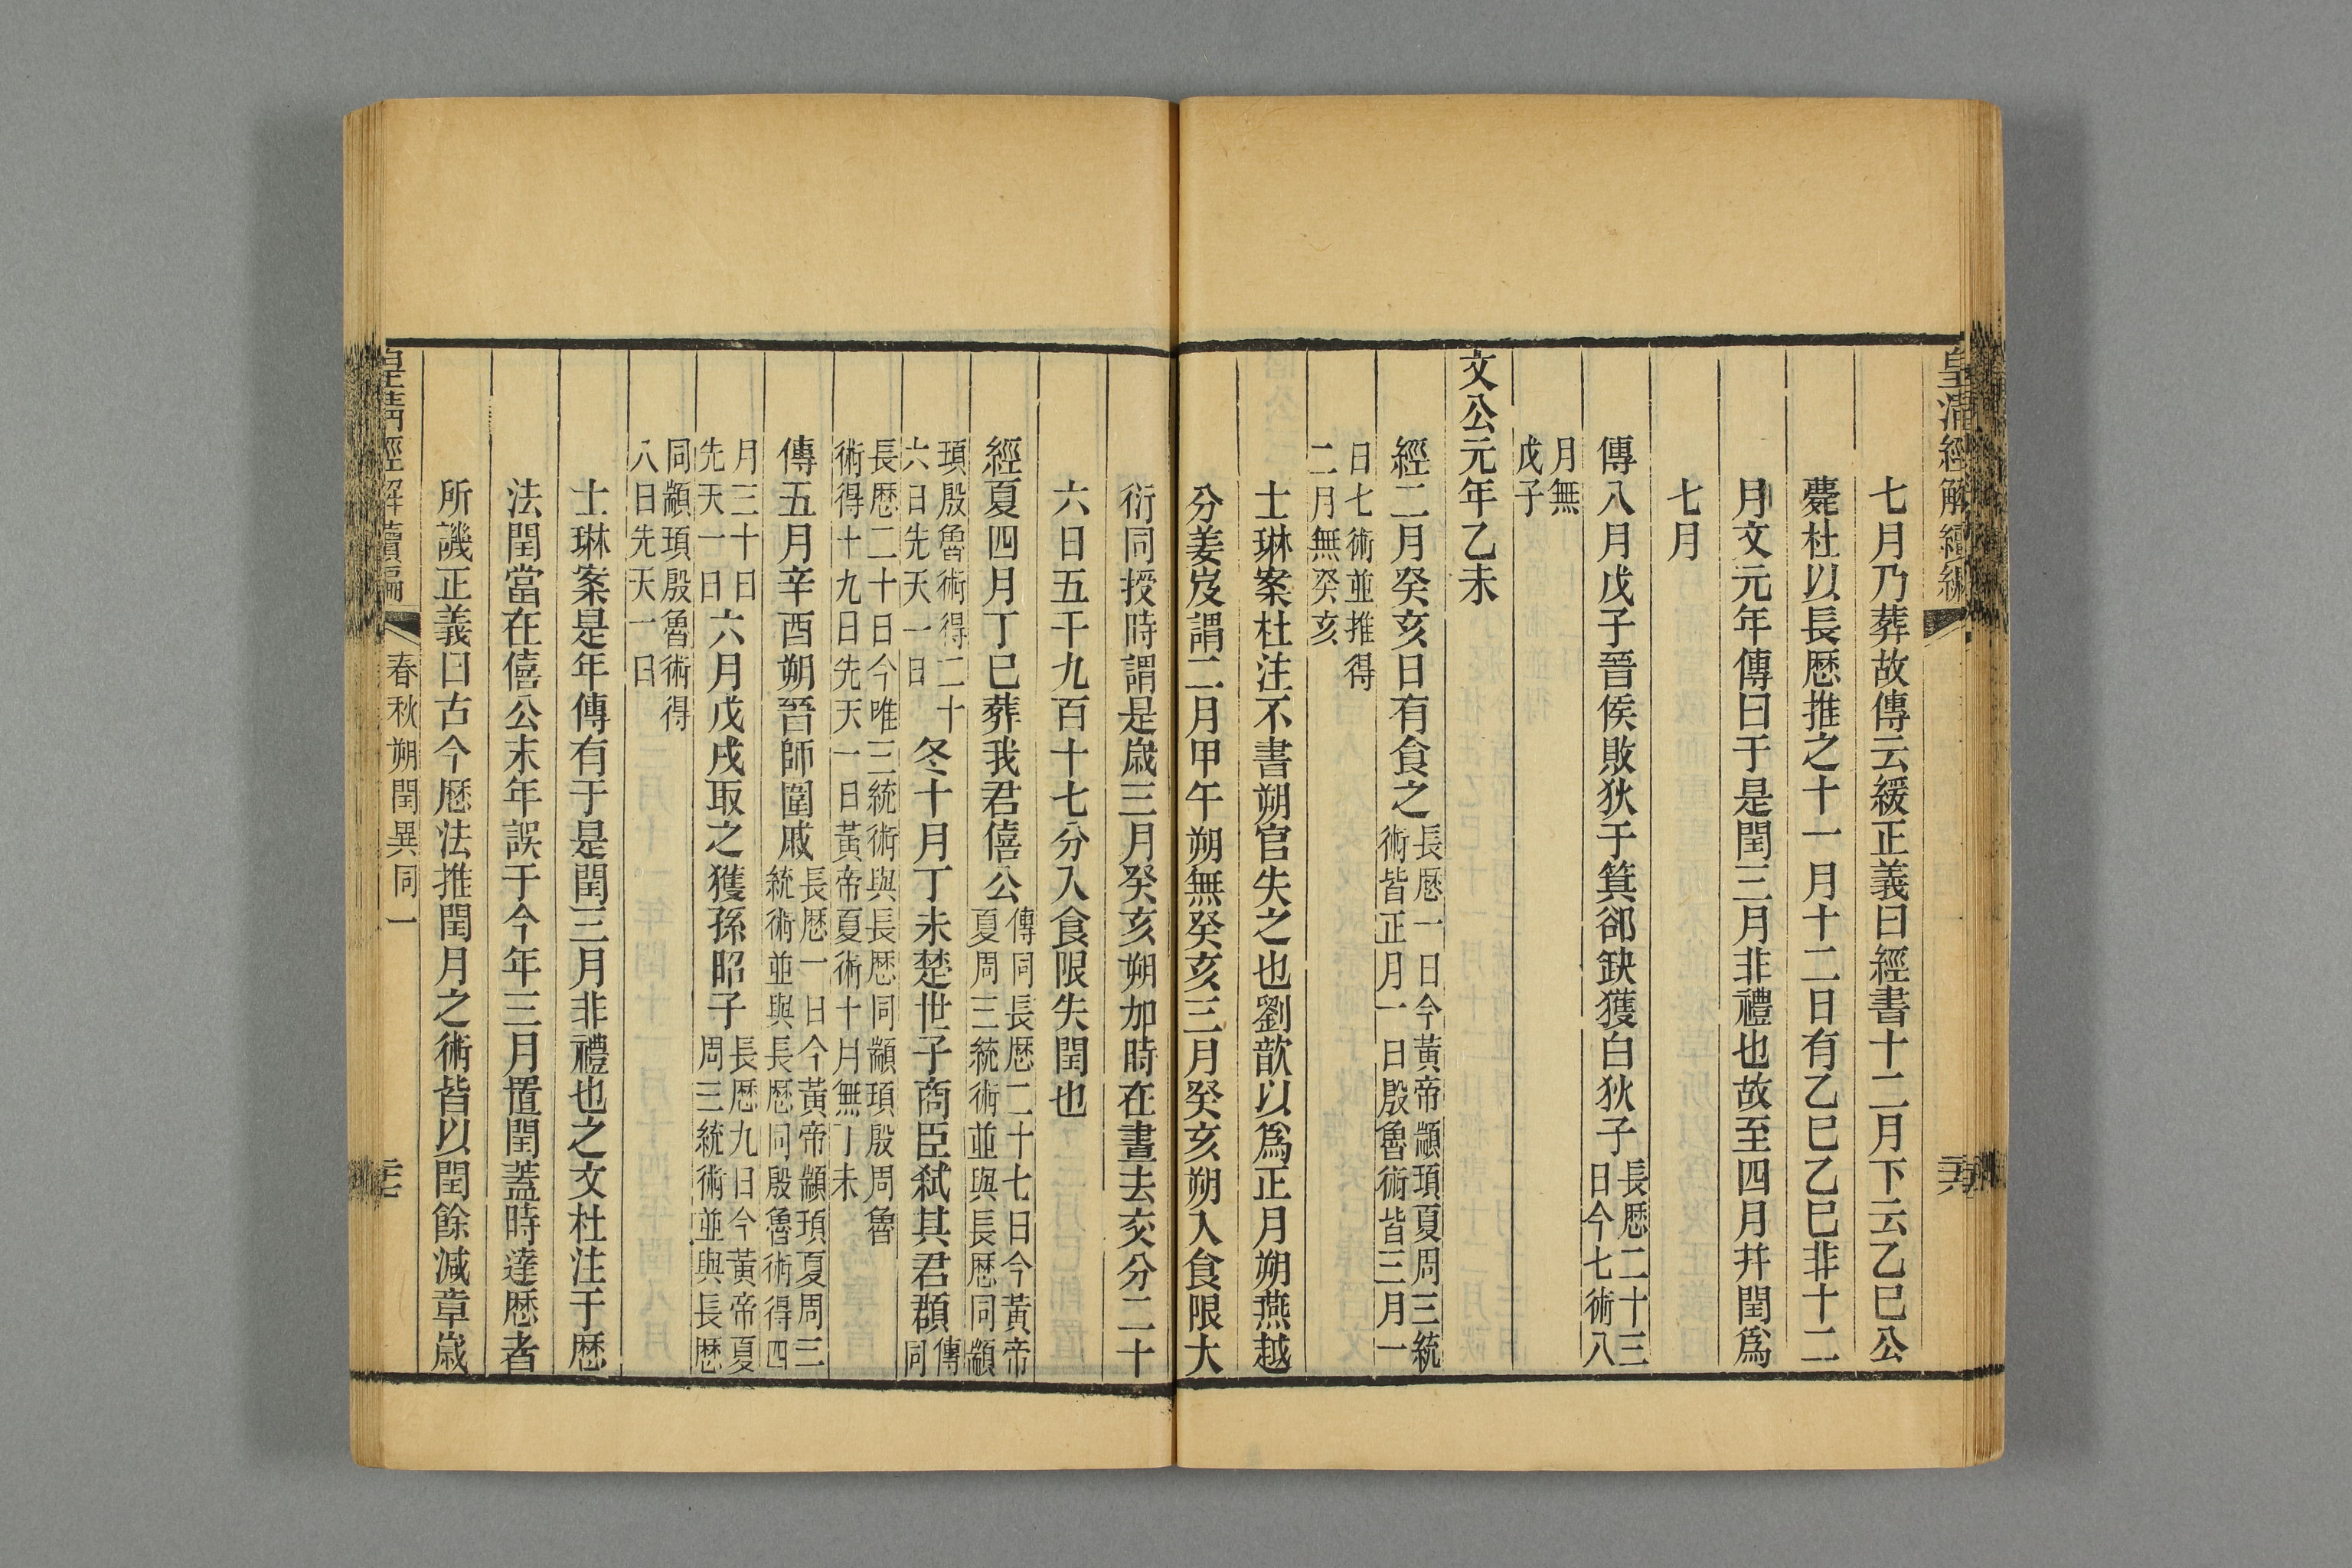 皇清經解續編
七月乃葬故傳云緩正義曰經書十二月下云乙巳公
薨杜以長厯推之十一月十二日有乙巳乙巳非十二
月文元年傳曰于是閏三月非禮也故至四月幷閏爲
七月
傳八月戊子晉侯敗狄于箕郤缺獲白狄子長厯二十三
日今七術八
月無
戊子
文公元年乙未
經二月癸亥日有食之長厯一日今黃帝顓頊夏周三統
術皆正月一日殷魯術皆三月一
日七術並推得
二月無癸亥
士琳案杜注不書朔官失之也劉歆以爲正月朔燕越
分姜岌謂二月甲午朔無癸亥三月癸亥朔入食限大
衍同授時謂是歲三月癸亥朔加時在晝去交分二十
六日五千九百十七分入食限失閏也
經夏四月丁巳葬我君僖公傳同長厯二十七日今黃帝
夏周三統術並與長厯同顓
頊殷魯術得二十
六日先天一日
冬十月丁未楚世子商臣弒其君頵傳
同
長厯二十日今唯三統術與長厯同顓頊殷周魯
術得十九日先天一日黃帝夏術十月無丁未
傳五月辛酉朔晉師圍戚長厯一日今黃帝顓頊夏周三
統術並與長厯同殷魯術得四
月三十日
先天一日
六月戊戌取之獲孫昭子長厯九日今黃帝夏
周三統術並與長厯
同顓頊殷魯術得
八日先天一日
士琳案是年傳有于是閏三月非禮也之文杜注于厯
法閏當在僖公末年誤于今年三月置閏蓋時達厯者
所譏正義曰古今厯法推閏月之術皆以閏餘減章歲
皇清經解續編
春秋朔閏異同一